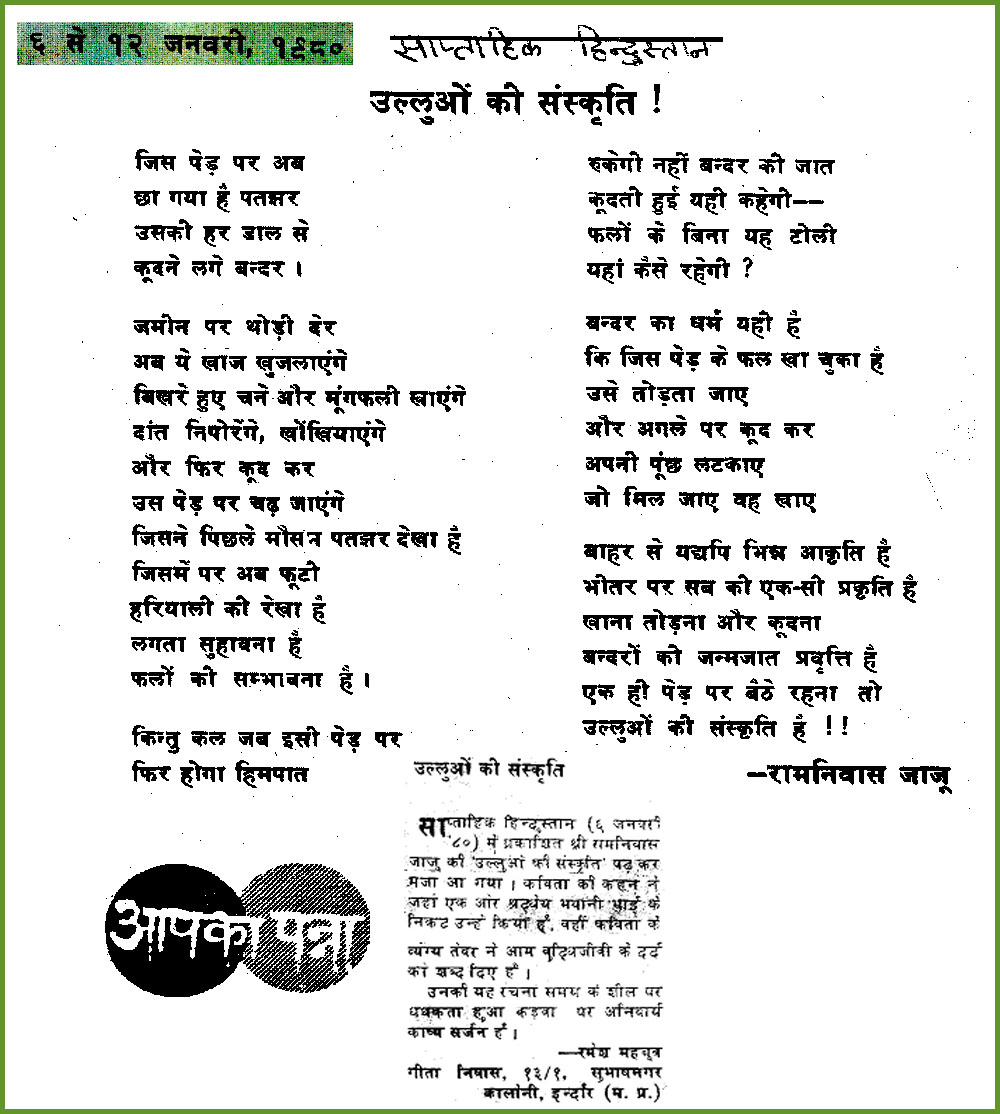 ६ से १२ जनवरी, १९८०
साप्ताहिक हिन्दुस्तान
उल्लुओं की संस्कृति !
जिस पेड़ पर अब
छा गया है पतझर
उसकी हर डाल से
कूदने लगे बन्दर ।
जमीन पर थोड़ी देर
अब ये खाज खुजलाएंगे
बिखरे हुए चने और मूंगफली खाएंगे
दांत निपोरेंगे, खोंखियाएंगे
और फिर कूद कर
उस पेड़ पर चढ़ जाएंगे
जिसने पिछले मौसम पतझर देखा है
जिसमें पर अब फूटी
हरियाली की रेखा है
लगता सुहावना है
फलों की सम्भावना है ।
किन्तु कल जब इसी पेड़ पर
फिर होगा हिमपात
रुकेगी नहीं बन्दर की जात
कूदती हुई यही कहेगी--
फलों के बिना यह टोली
यहां कैसे रहेगी ?
बन्दर का धर्म यही है
कि जिस पेड़ के फल खा चुका है
उसे तोड़ता जाए
और अगले पर कूद कर
अपनी पूंछ लटकाए
जो मिल जाए वह खाए
बाहर से यद्यपि भिन्न आकृति है
भीतर पर सब की एक-सी प्रकृति है
खाना तोड़ना और कूदना
बन्दरों की जन्मजात प्रवृत्ति है
एक ही पेड़ पर बैठे रहना तो
उल्लुओं की संस्कृति है !!
—रामनिवास जाजू
आपका पन्ना
उल्लुओं की संस्कृति
साप्ताहिक हिन्दुस्तान (६ जनवरी
'८०) में प्रकाशित श्री रामनिवास
जाजू की 'उल्लुओं की संस्कृति' पढ़ कर
मजा आ गया । कविता की कहन ने
जहां एक ओर श्रद्धेय भवानी भाई के
निकट उन्हें किया है, वहीं कविता के
व्यंग्य तेवर ने आम बुद्धिजीवी के दर्द
को शब्द दिए हैं ।
उनकी यह रचना समय के शील पर
धधकता हुआ कड़वा पर अनिवार्य
काव्य सर्जन है ।
—रमेश महबूब
गीता निवास, १३/१, सुभाषनगर
कालोनी, इन्दौर (म. प्र.)